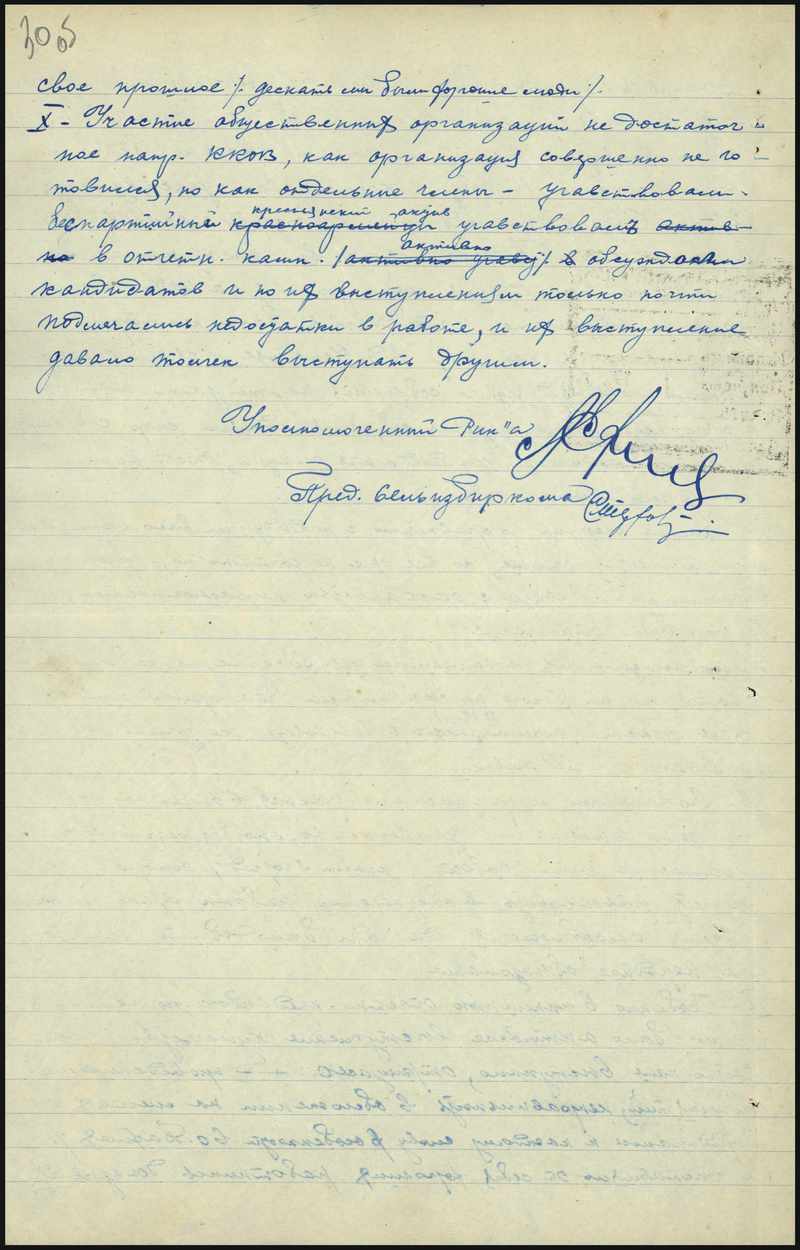 305
свое прошлое /. дескать мы были хорошие люди /.
X - Участие общественных организаций не достаточ
ное напр. ККОВ, как организация совершенно не го
товился, но как отдельные члены - учавствовали.
крестьянский актив
беспартийный красноармейцы учавствовали актив-
активно
но в отчетн. камп. /активно учав/ в обсуждении
кандидатов и по их выступлениям только почти
подмечались недостатки в работе, и их выступление
давало толчек выступать другим.
Уполномоченный Рик"а
Пред. Сельизбиркома